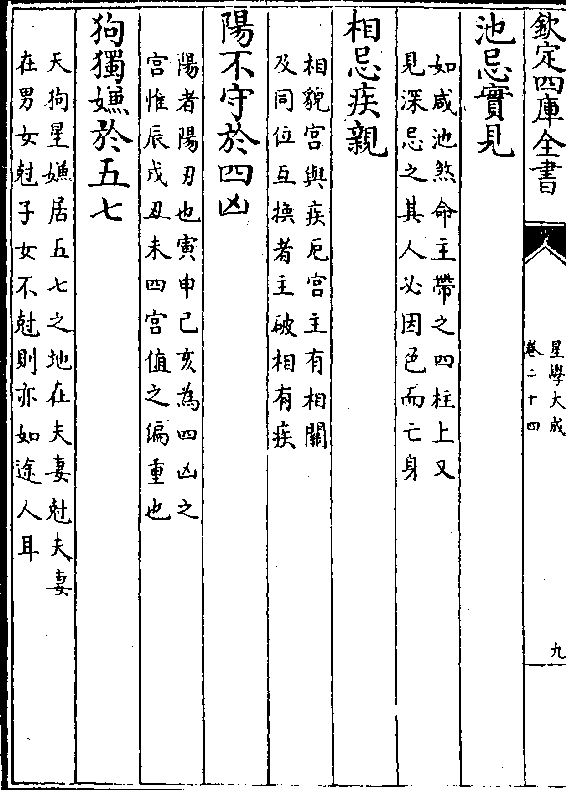 欽定四庫全書
星學大成
卷二十四
九
池忌實見
如咸池煞命主帶之四柱上又
見深忌之其人必因色而亡身
相忌疾親
相貌宮與疾厄宮主有相關
及同位互換者主破相有疾
陽不守於四凶
陽者陽刃也寅申己亥為四凶之
宮惟辰戌丑未四宮值之偏重也
狗獨嫌於五七
天狗星嫌居五七之地在夫妻尅夫妻
在男女尅子女不尅則亦如途人耳